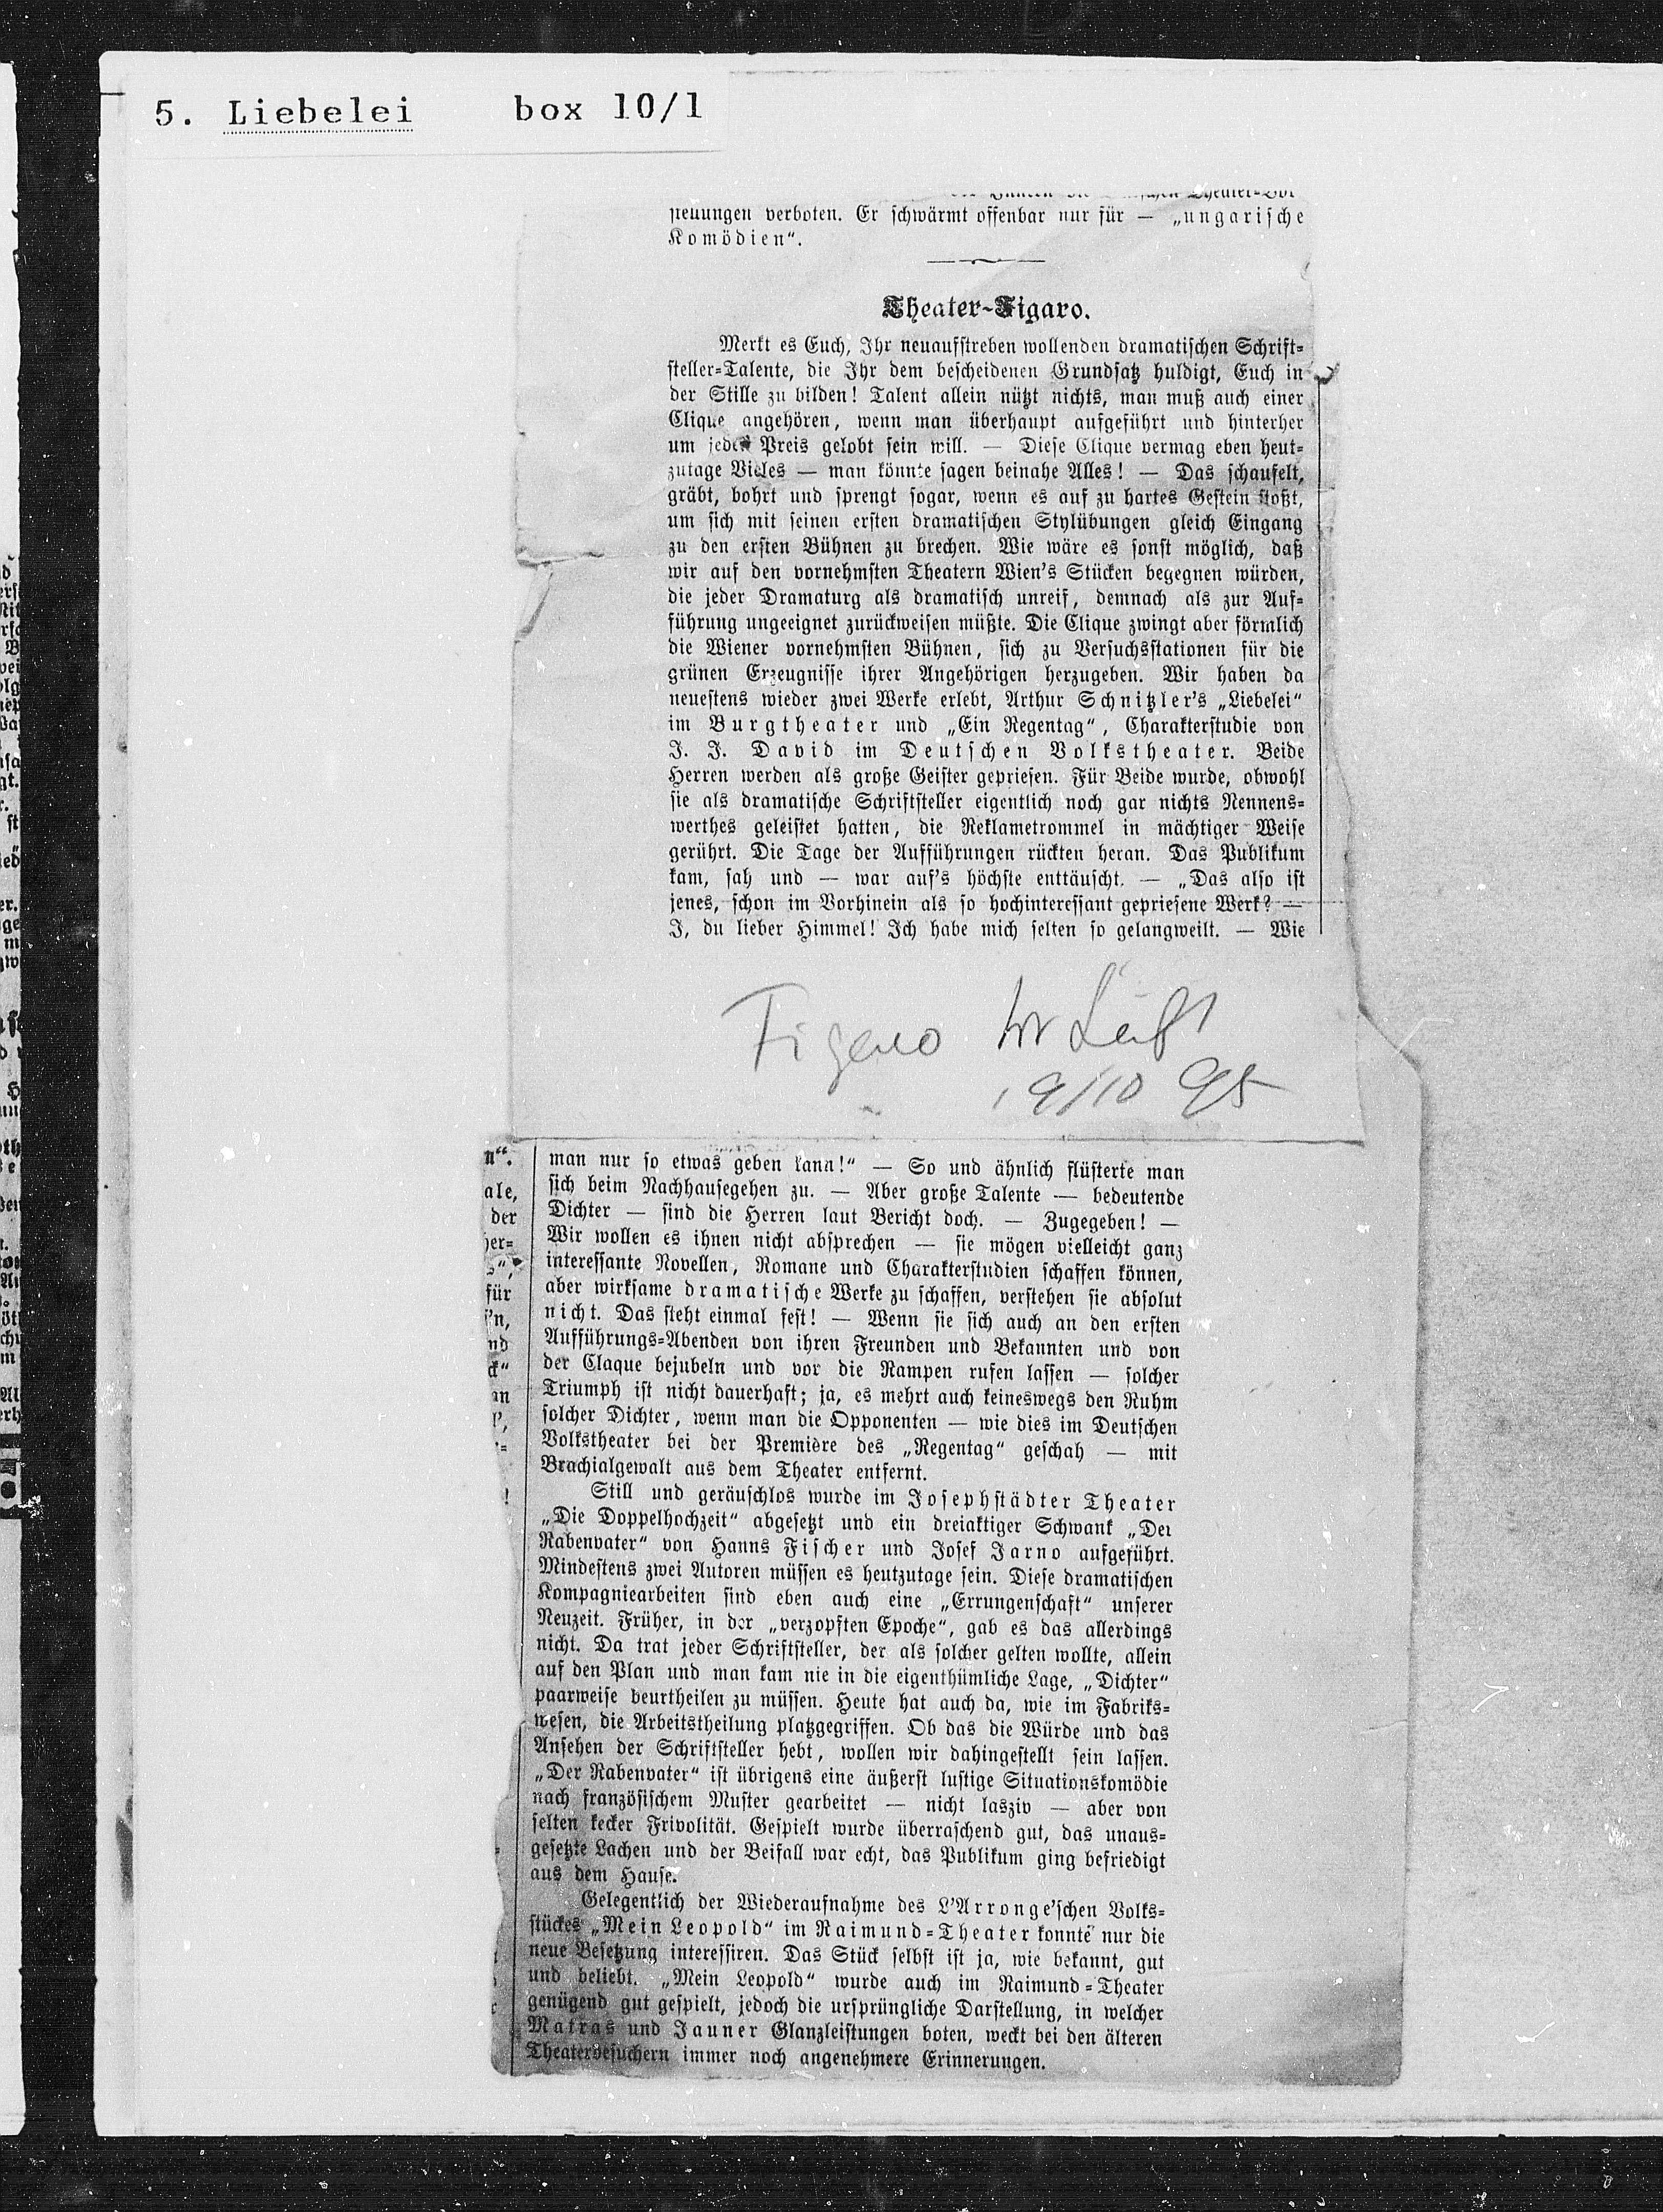 5. Liebelei box 10/1
verboten. Er schwärmt offenbar nur für — „ungarische
Komödien“.
Theater-Figaro.
Merkt es Euch, Ihr neuaufstreben wollenden dramatischen Schrift-
steller-Talente, die Ihr dem bescheidenen Grundsatz huldigt, Euch in
der Stille zu bilden! Talent allein nützt nichts, man muß auch einer
Clique angehören, wenn man überhaupt aufgeführt und hinterher
um jeden Preis gelobt sein will. — Diese Clique vermag eben heut-
zutage Vieles — man könnte sagen beinahe Alles! — Das schaufelt,
gräbt, bohrt und sprengt sogar, wenn es auf zu hartes Gestein stoßt,
um sich mit seinen ersten dramatischen Stylübungen gleich Eingang
zu den ersten Bühnen zu brechen. Wie wäre es sonst möglich, daß
wir auf den vornehmsten Theatern Wien's Stücken begegnen würden,
die jeder Dramaturg als dramatisch unreif, demnach als zur Auf-
führung ungeeignet zurückweisen müßte. Die Clique zwingt aber förmlich
die Wiener vornehmsten Bühnen, sich zu Versuchsstationen für die
grünen Erzeugnisse ihrer Angehörigen herzugeben. Wir haben da
neuestens wieder zwei Werke erlebt, Arthur Schnitzler's „Liebelei“
im Burgtheater und „Ein Regentag“, Charakterstudie von
J. J. David im Deutschen Volkstheater. Beide
Herren werden als große Geister gepriesen. Für Beide wurde, obwohl
sie als dramatische Schriftsteller eigentlich noch gar nichts Nennens-
werthes geleistet hatten, die Reklametrommel in mächtiger Weise
gerührt. Die Tage der Aufführungen rückten heran. Das Publikum
kam, sah und — war auf's höchste enttäuscht. — „Das also ist
jenes, schon im Vorhinein als so hochinteressant gepriesene Werk? —
J, du lieber Himmel! Ich habe mich selten so gelangweilt. — Wie
Figaro
19/10 95
n“.
ale,
der
her-
für
nd
an
man nur so etwas geben kann!“ — So und ähnlich flüsterte man
sich beim Nachhausegehen zu. — Aber große Talente — bedeutende
Dichter — sind die Herren laut Bericht doch. — Zugegeben! —
Wir wollen es ihnen nicht absprechen — sie mögen vielleicht ganz
interessante Novellen, Romane und Charakterstudien schaffen können,
aber wirksame dramatische Werke zu schaffen, verstehen sie absolut
nicht. Das steht einmal fest! — Wenn sie sich auch an den ersten
Aufführungs-Abenden von ihren Freunden und Bekannten und von
der Claque bejubeln und vor die Rampen rufen lassen — solcher
Triumph ist nicht dauerhaft; ja, es mehrt auch keineswegs den Ruhm
solcher Dichter, wenn man die Opponenten — wie dies im Deutschen
Volkstheater bei der Première des „Regentag“ geschah — mit
Brachialgewalt aus dem Theater entfernt.
Still und geräuschlos wurde im Josephstädter Theater
„Die Doppelhochzeit“ abgesetzt und ein dreiaktiger Schwank „Der
Rabenvater“ von Hanns Fischer und Josef Jarno aufgeführt.
Mindestens zwei Autoren müssen es heutzutage sein. Diese dramatischen
Kompagniearbeiten sind eben auch eine „Errungenschaft“ unserer
Neuzeit. Früher, in der „verzopften Epoche“, gab es das allerdings
nicht. Da trat jeder Schriftsteller, der als solcher gelten wollte, allein
auf den Plan und man kam nie in die eigenthümliche Lage, „Dichter“
paarweise beurtheilen zu müssen. Heute hat auch da, wie im Fabriks-
wesen, die Arbeitstheilung platzgegriffen. Ob das die Würde und das
Ansehen der Schriftsteller hebt, wollen wir dahingestellt sein lassen.
„Der Rabenvater“ ist übrigens eine äußerst lustige Situationskomödie
nach französischem Muster gearbeitet — nicht lasziv — aber von
selten kecker Frivolität. Gespielt wurde überraschend gut, das unaus-
gesetzte Lachen und der Beifall war echt, das Publikum ging befriedigt
aus dem Hause.
Gelegentlich der Wiederaufnahme des L'Arronge'schen Volks-
stückes „Mein Leopold“ im Raimund-Theater konnte nur die
neue Besetzung interessiren. Das Stück selbst ist ja, wie bekannt, gut
und beliebt. „Mein Leopold“ wurde auch im Raimund-Theater
genügend gut gespielt, jedoch die ursprüngliche Darstellung, in welcher
Matras und Jauner Glanzleistungen boten, weckt bei den älteren
Theaterbesuchern immer noch angenehmere Erinnerungen.